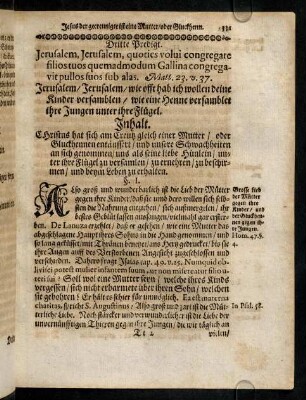 Jesus der gecreutzigte ist ein Mutter oder Gluckhenn. 331
Dritte Predigt.
Jerusalem, Jerusalem, quoties volui congregare
filios tuos quemadmodum Gallina congrega-
vit pullos suos sub alas. Math. 23. v. 37.
Jerusalem / Jerusalem / wie offt hab ich wollen deine
Kinder versamblen / wie eine Henne versamblet
ihre Jungen unter ihre Flügel.
Inhalt.
CHristus hat sich am Creutz gleich einer Mutter / oder
Gluckhennen entäussert / und unsere Schwachheiten
an sich genommen / uns als seine liebe Hünlein / un-
ter ihre Flügel zu versamlen / zu ernehren / zu beschir-
men / und beyin Leben zu erhalten.
§. 1.
ALso groß und wunderbarlich ist die Lieb der Mütter
gegen ihre Kinder / daß sie und dero willen sich selb-
sten die Nahrung entziehen / sich außmerglen / ihr
bestes Geblüt lassen außsaugen / vielmahl gar erster-
ben. De Lanoza erzehlet / daß er gesehen / wie eine Mutter das
abgeschlagene Haupt ihres Sohns in die Hand genommen / und
so lang geküsset / mit Thränen benetzet / ans Hertz gedrucket / biß sie
ihre Augen auff des Verstorbenen Angesicht zugeschlossen und
verschieden. Dahero fragt Isaias cap. 49. v. 15. Nunquid ob-
livisci potest mulier infantem suum, ut non misereatur filio u-
teri sui? Soll wol eine Mutter seyn / welche ihres Kinds
vergessen / sich nicht erbarmen über ihren Sohn / welchen
sie gebohren? Er hält es schier für unmöglich. Exaestu materna
charitas, spricht S. Augustinus / Also groß und zart ist die müt-
terliche Liebe. Noch stärcker und verwunderlicher ist die Liebe der
unvernünfftigen Thieren gegen ihre Jungen / die wir täglich an
Tt 2 vielen /
Grosse Lieb
der Mütter
gegen ihre
Kinder / und
der Gluckhen-
nen gegen ih-
re Jungen.
Hom. 47. §.
4.
In Psal. 58.